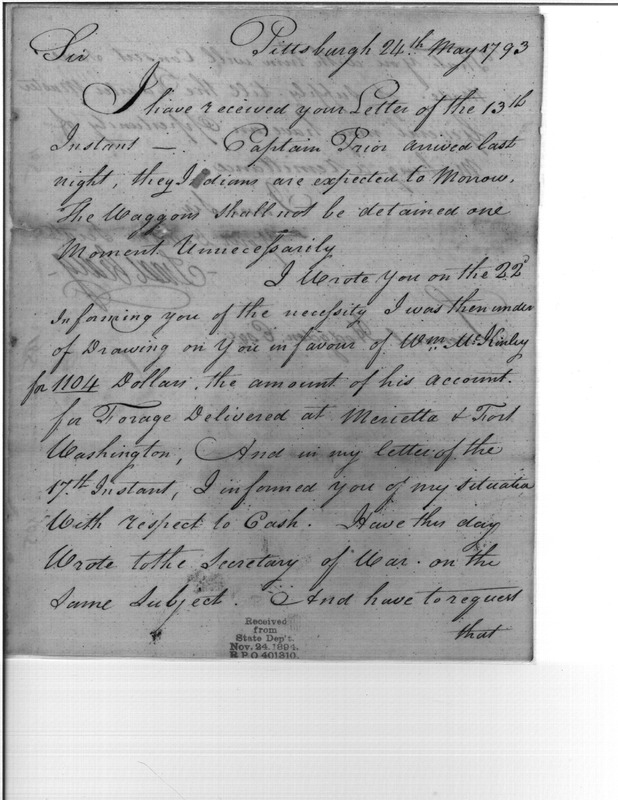 Pittsburgh 24th May 1793
Sir
I have received your Letter of the 13th
Instant —. Captain Prior arrived last
night, they Indians are expected to Morrow.
The Waggons shall not be detained one
Moment Unnecessarily
I Wrote You on the 22d
Informing you of the necessity I was then under
of Drawing on You in favour of Wm. McKinley
for 1104 Dollars, the amount of his account.
for Forage Delivered at Merietta & Fort
Washington, And in my letter of the
17th Instant, I informed you of my situatio
With respect to Cash. Have this day
Wrote to the Secretary of War. on the
Same Subject. And have to request
that
Received
from
State Dep't.
Nov. 24. 1894.
R.P.O 401310.